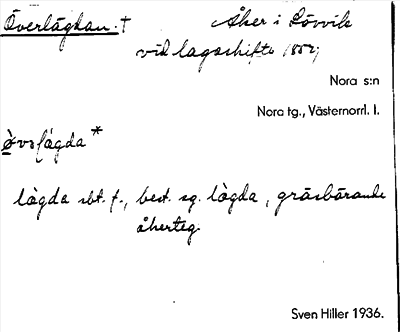 Överlägdan. † Åker i Lövvik
vid lagaskifte 1852;
Nora s:n
Nora tg., Västernorrl. l.
lägda sbt. f., best. sg. lägda, gräsbärande
åkerteg.
Sven Hiller 1936.